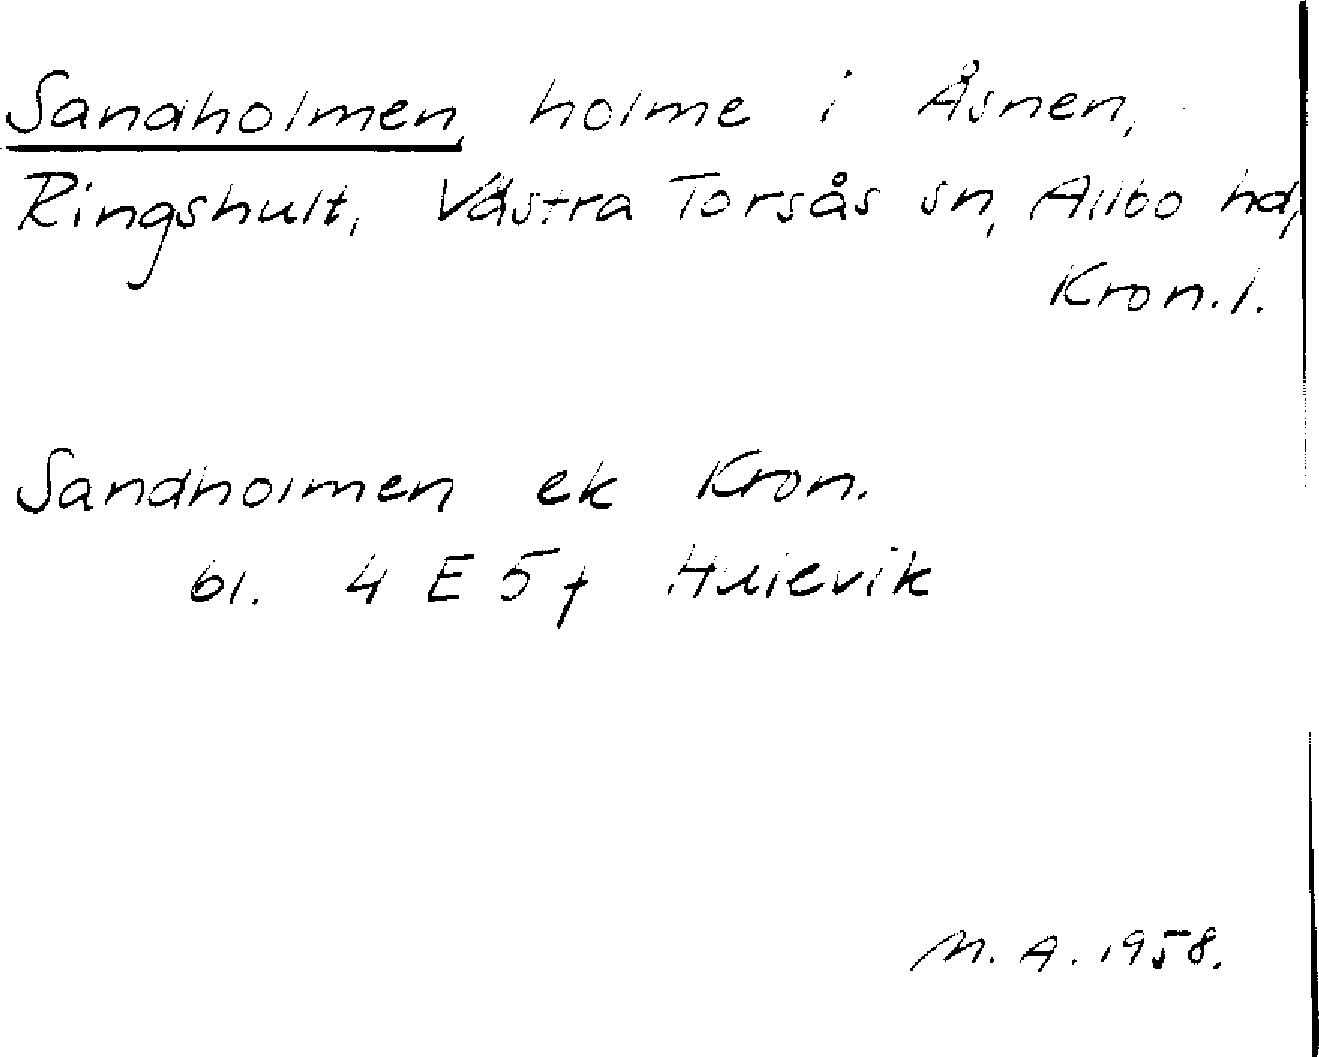 Sandholmen, holme i Åsnen,
Ringshult, Västra Torsås sn, Allbo hd,
Kron. l.
Sandholmen ek Kron.
bl. 4 E 5 f Hulevik
M. A. 1958.